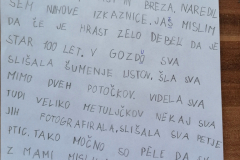 IN BREZA. NAREDIL
SEM NJIHOVE IZKAZNICE. JAS MISLIM
DA ČE JE HRAST ZELO DEBEL DA JE
STAR 100 LET. V GOZDU SVA
SLIŠALA ŠUMENJE LISTOV. ŠLA SVA
MIMO DVEH POTOČKOV. VIDELA SVA
TUDI VELIKO METULJČKOV NEKAJ SVA
JIH POTOGRAFIRALA. SLIŠALA SVA PETJE
PTIC. TAKO MOČNO SO PELE DA SVA
Z MAMI